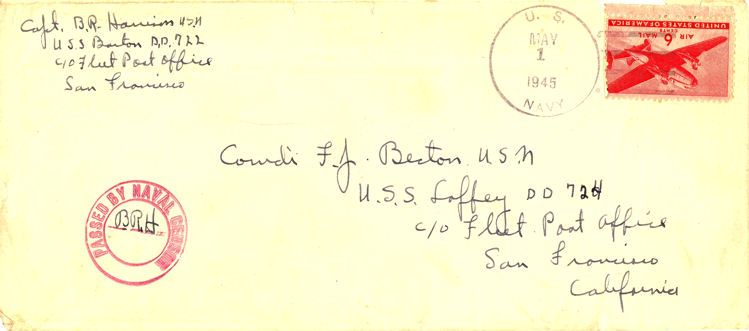 Capt. B.R. Harrison USN
U.S.S Barton D.D. 722
c/o Fleet Post Office
San Francisco
U. S.
MAY
1
1945
NAVY
UNITED STATES OF AMERICA
AIR MAIL
6
CENTS
Comdr F.J. Becton USN
U.S.S. Laffey DD 724
c/o Fleet Post Office
San Francisco
California
PASSED BY NAVAL CENSOR
BRH